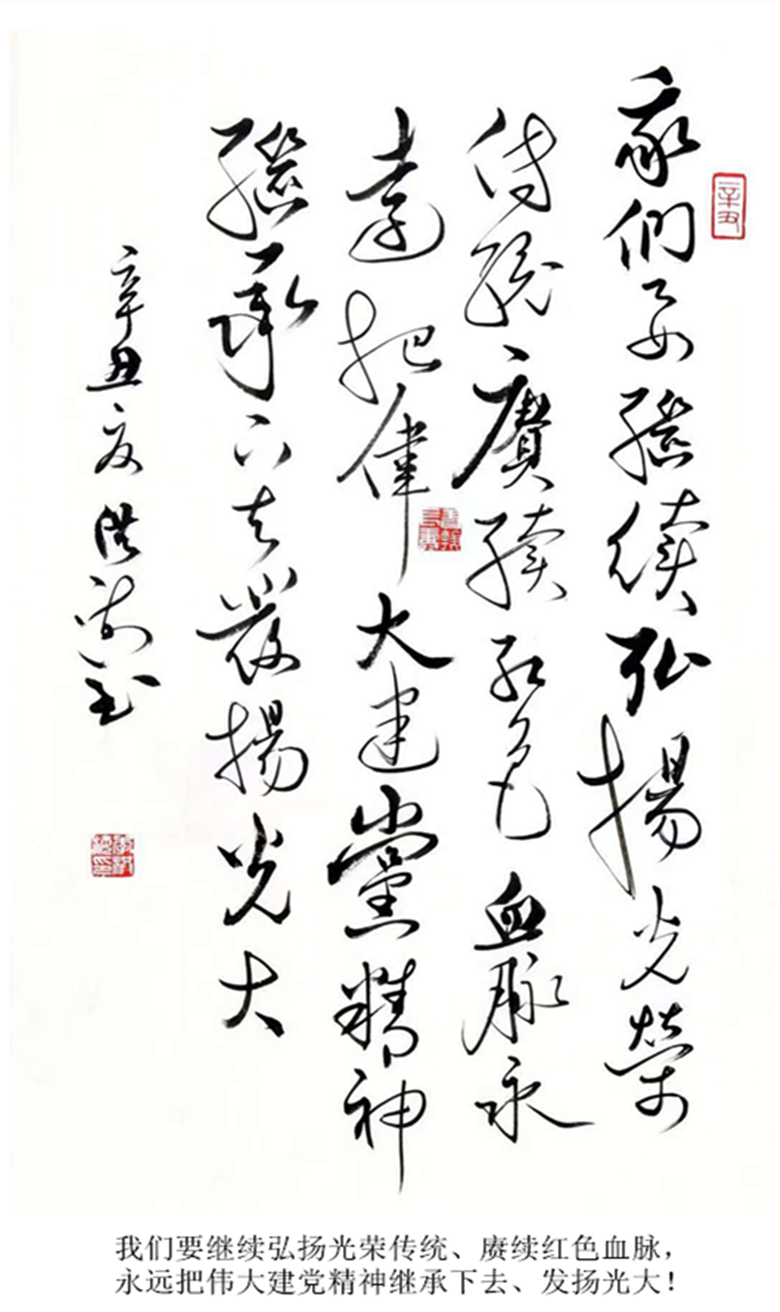 辛丑
我們要繼續弘揚光榮
傳統賡續紅色血脈永
遠把偉大建黨精神
繼承下去發揚光大
辛丑夏洪
我们要继续弘扬光荣传统、赓续红色血脉，
永远把伟大建党精神继承下去、发扬光大！